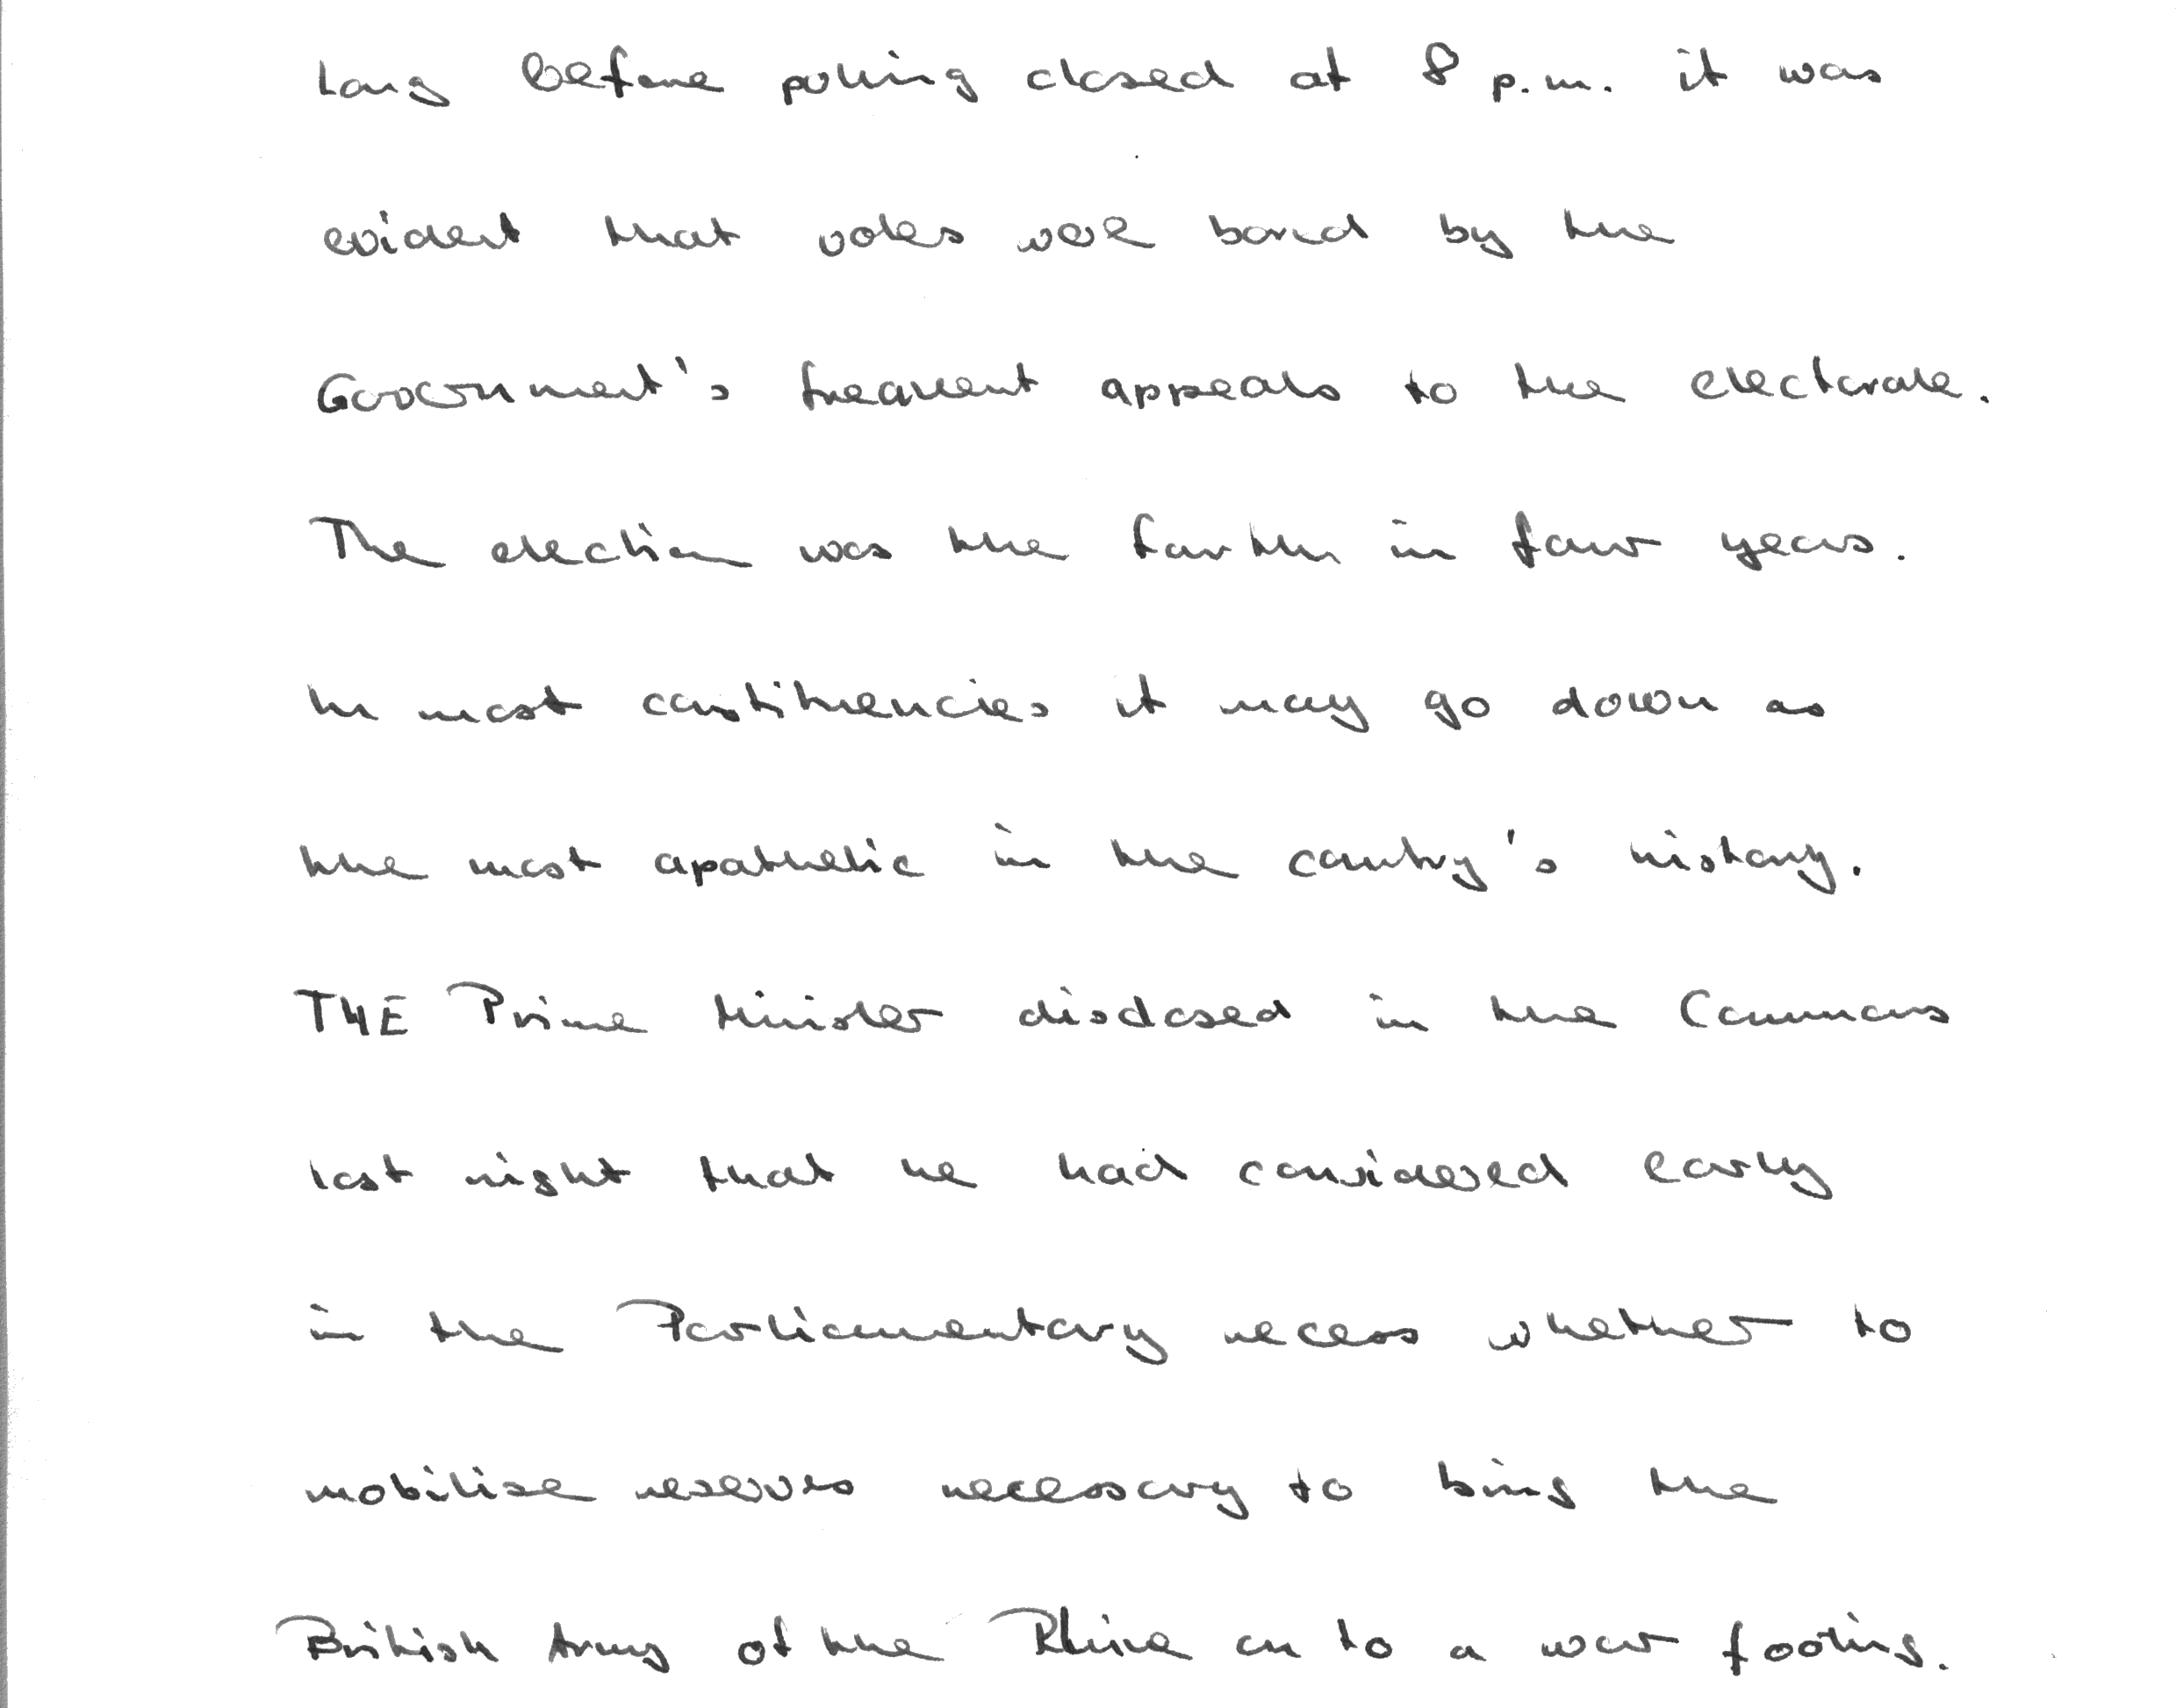 Long before polling closed at 8 p.m. it was
evident that voters were bored by the
Government's frequent appeals to the electorate.
The election was the fourth in four years.
In most constituencies it may go down as
the most apathetic in the country's history.
THE Prime Minister disclosed in the Commons
last night that he had considered early
in the Parliamentary recess whether to
mobilise reserves necessary to bring the
British Army of the Rhine on to a war footing.